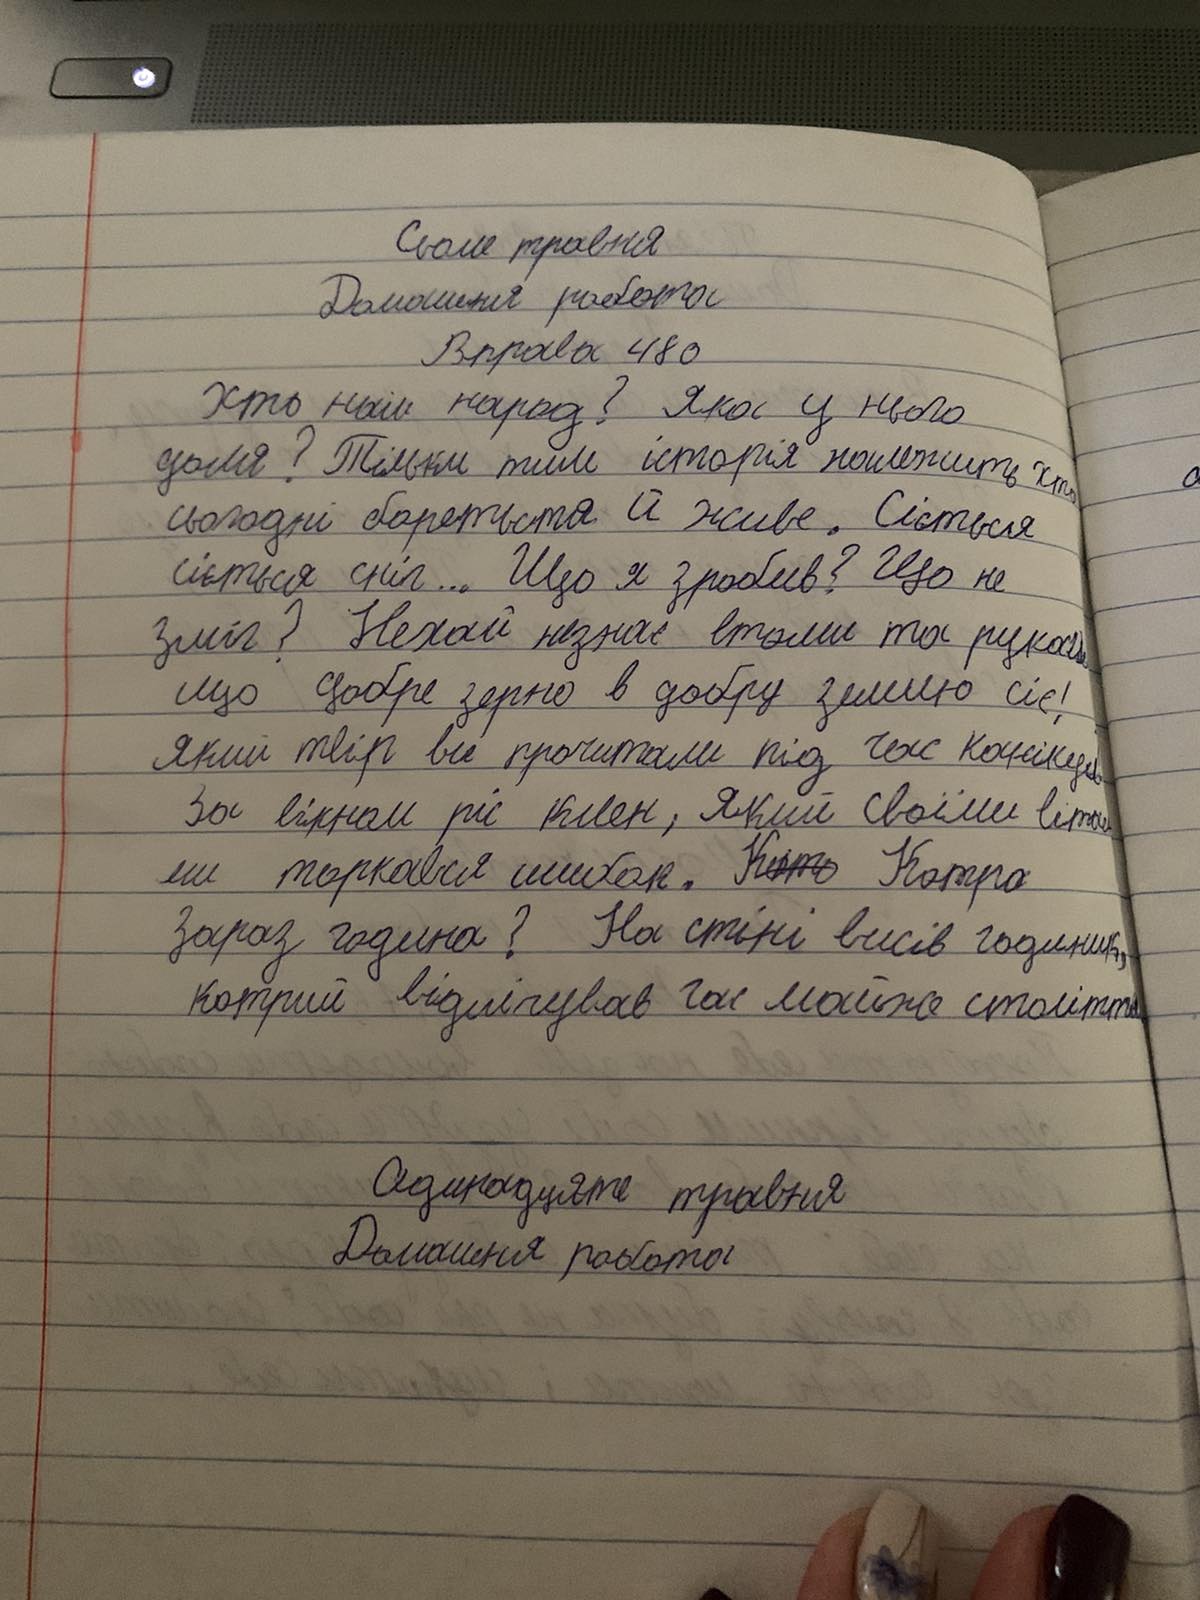 Сьоме травня
Домашня робота
Вправа 480
Хто наш народ? Яка у нього
доля? Тільки тим історія належить хто
сьогодні бореться й живе. Сіється
сіється сніг... Що я зробив? Що не
зміг? Нехай незнає втоми та рука
що добре зерно в добру землю сіє!
Який твір ви прочитали під час канікул
За вікном ріс клен, який своїми віта
ми торкався шибок. Котра
зараз година? На стіні висів годинник,
котрий відлічував час майже століття
Одинадцяте травня
Домашня робота